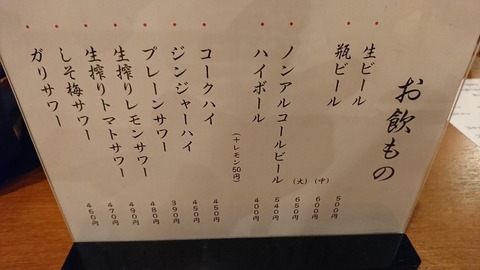 お飲もの
生ビール 500円
瓶ビール (中) 600円
(大) 650円
ノンアルコールビール 540円
ハイボール 400円
(+レモン50円)
コークハイ 450円
ジンジャーハイ 450円
プレーンサワー 390円
生搾りレモンサワー 480円
生搾りトマトサワー 490円
しそ梅サワー 470円
ガリサワー 450円